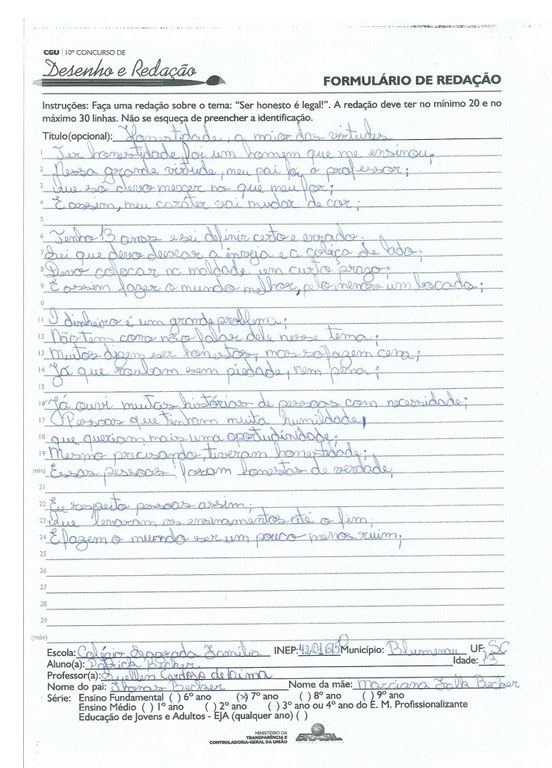 CGU | 10º CONCURSO DE
Desenho e Redação
FORMULÁRIO DE REDAÇÃO
Instruções: Faça uma redação sobre o tema: "Ser honesto é legal!". A redação deve ter no mínimo 20 e no
máximo 30 linhas. Não se esqueça de preencher a identificação.
Título(opcional): Honestidade, a maior das virtudes
1 Ter honestidade foi um homem que me ensinou;
2 Nessa grande virtude, meu pai foi o professor;
3 Que só devo mexer no que meu for;
4 E assim, meu caráter vai mudar de cor;
5
6 Tenho 13 anos e sei definir certo e errado.
7 Sei que devo deixar a inveja e a cobiça de lado;
8 Devo colocar na maldade um curto prazo;
9 E assim fazer o mundo melhor, pelo menos um bocado;
0
11 O dinheiro é um grande problema;
12 Não tem como não falar dele nesse tema;
13 Muitos dizem ser honestos, mas só fazem cena;
14 Já que roubam sem piedade, nem pena;
15
16 Já ouvi muitas histórias de pessoas com necessidade;
17 Pessoas que tinham muita humildade,
18 que queriam mais uma oportunidade;
19 Mesmo precisando, tiveram honestidade;
(mín) Essas pessoas foram honestas de verdade;
21
22 Eu respeito pessoas assim;
23 Que levaram os ensinamentos até o fim,
24 E fazem o mundo ser um pouco menos ruim;
25
26
27
28
29
(máx)
Escola: Colégio Sagrada Família INEP: Município: Blumenau UF: SC
Aluno(a): Becker Idade: 13
Professor(a): Suellen Cardoso de Lima
Nome do pai: Becker Nome da mãe: Marciana Becker
Série: Ensino Fundamental ( ) 6º ano (x) 7º ano ( ) 8º ano ( ) 9º ano
Ensino Médio ( ) 1º ano ( ) 2º ano ( ) 3º ano ou 4º ano do E. M. Profissionalizante
Educação de Jovens e Adultos - EJA (qualquer ano) ( )
MINISTÉRIO DA
TRANSPARÊNCIA E
CONTROLADORIA-GERAL DA UNIÃO
BRASIL